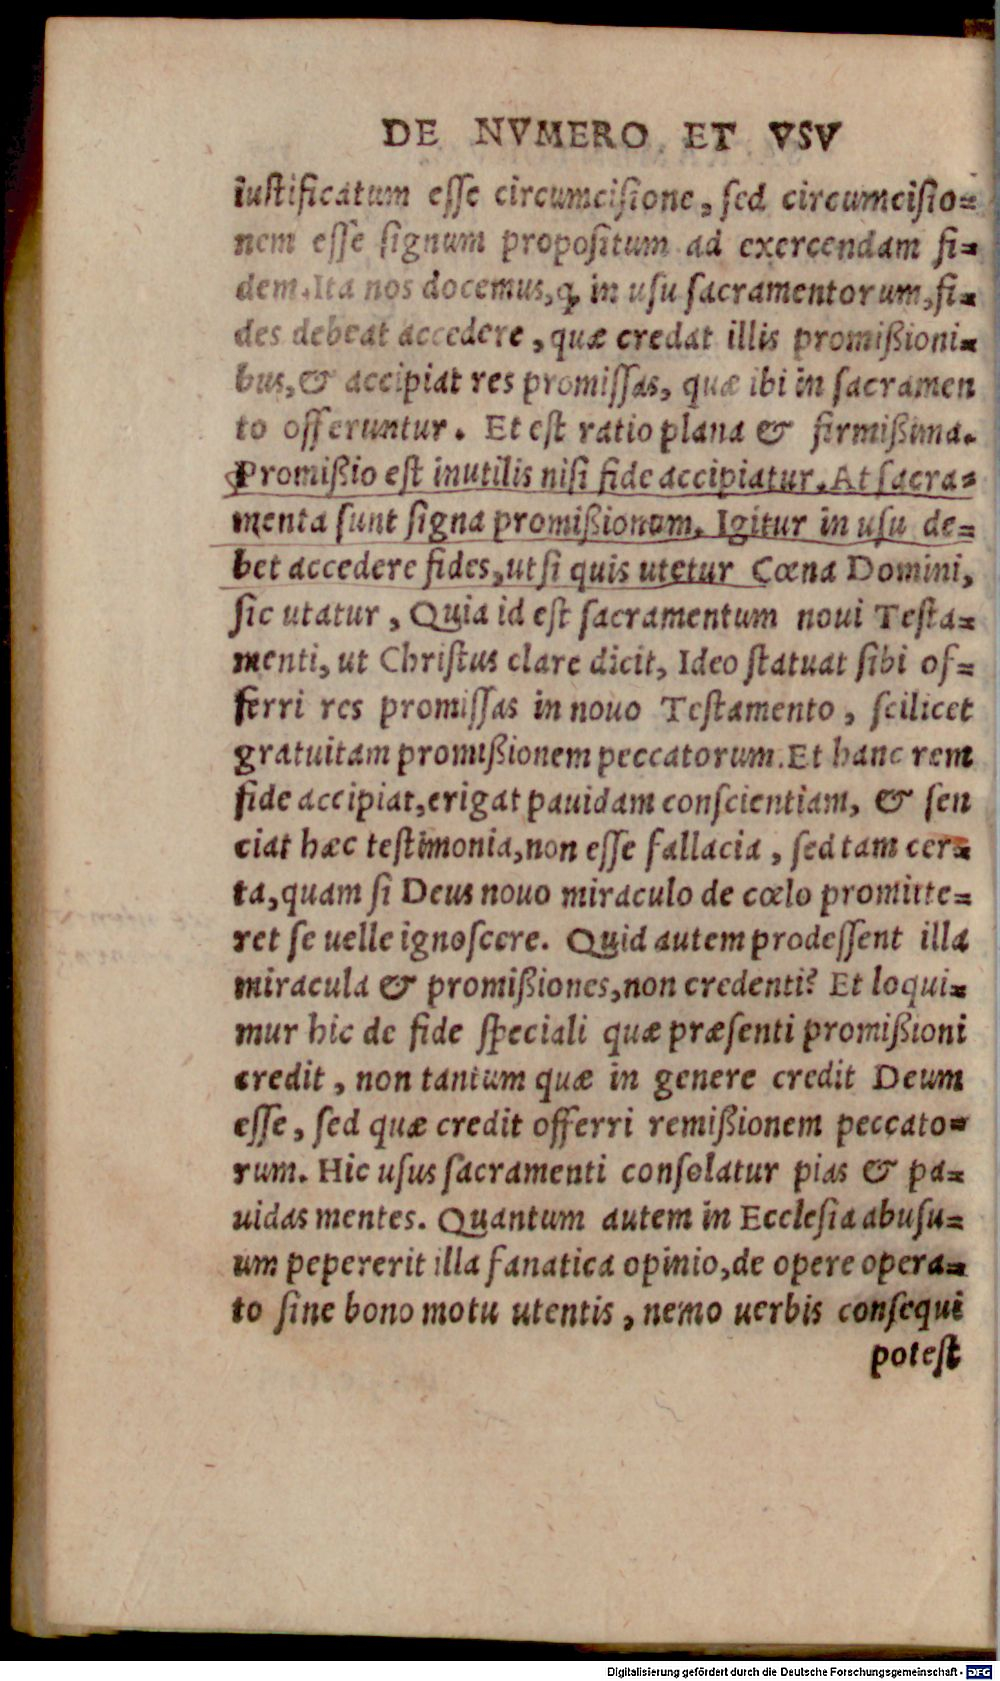 DE NVMERO ET VSV
iustificatum esse circumcisione, sed circumcisio-
nem esse signum propositum ad exercendam fi-
dem. Ita nos docemus, ꝙ in usu sacramentorum, fi-
des debeat accedere, quæ credat illis promißioni-
bus, & accipiat res promissas, quæ ibi in sacramen
to offeruntur. Et est ratio plana & firmißima.
Promißio est inutilis nisi fide accipiatur. At sacra-
menta sunt signa promißionum. Igitur in usu de-
bet accedere fides, ut si quis utetur Cœna Domini,
sic utatur, Quia id est sacramentum noui Testa-
menti, ut Christus clare dicit, Ideo statuat sibi of-
ferri res promissas in nouo Testamento, scilicet
gratuitam promißionem peccatorum. Et hanc rem
fide accipiat, erigat pauidam conscientiam, & sen
ciat hæc testimonia, non esse fallacia, sed tam cer-
ta, quam si Deus nouo miraculo de cœlo promitte-
ret se uelle ignoscere. Quid autem prodessent illa
miracula & promißiones, non credenti? Et loqui-
mur hic de fide speciali quæ præsenti promißioni
credit, non tantum quæ in genere credit Deum
esse, sed quæ credit offerri remißionem peccato-
rum. Hic usus sacramenti consolatur pias & pa-
uidas mentes. Quantum autem in Ecclesia abusu-
um pepererit illa fanatica opinio, de opere opera-
to sine bono motu utentis, nemo uerbis consequi
potest
Digitalisierung gefördert durch die Deutsche Forschungsgemeinschaft - DFG